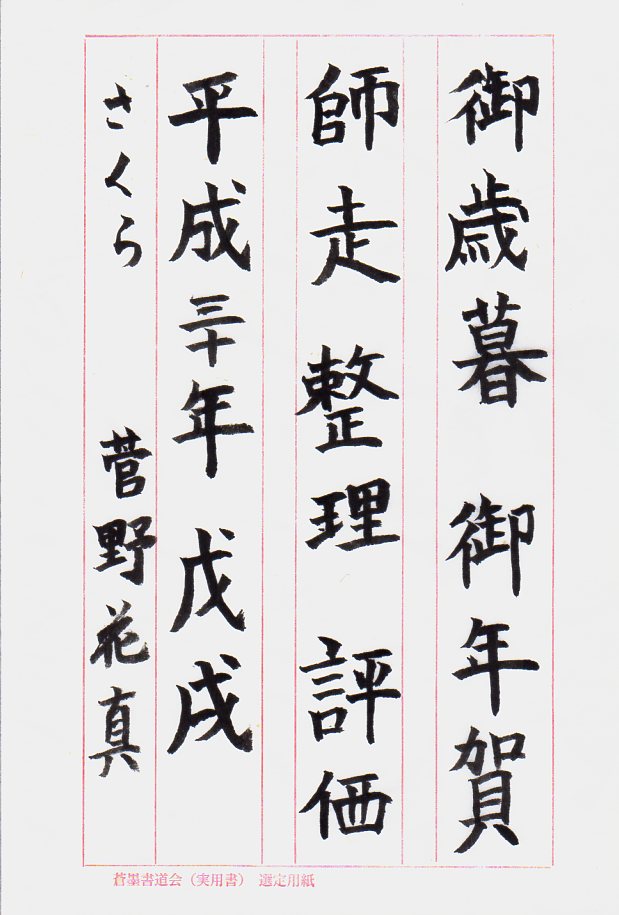 御歳暮 御年賀
師走 整理 評価
平成三十年 戊戌
さくら 菅野花真
蒼墨書道会（実用書） 選定用紙